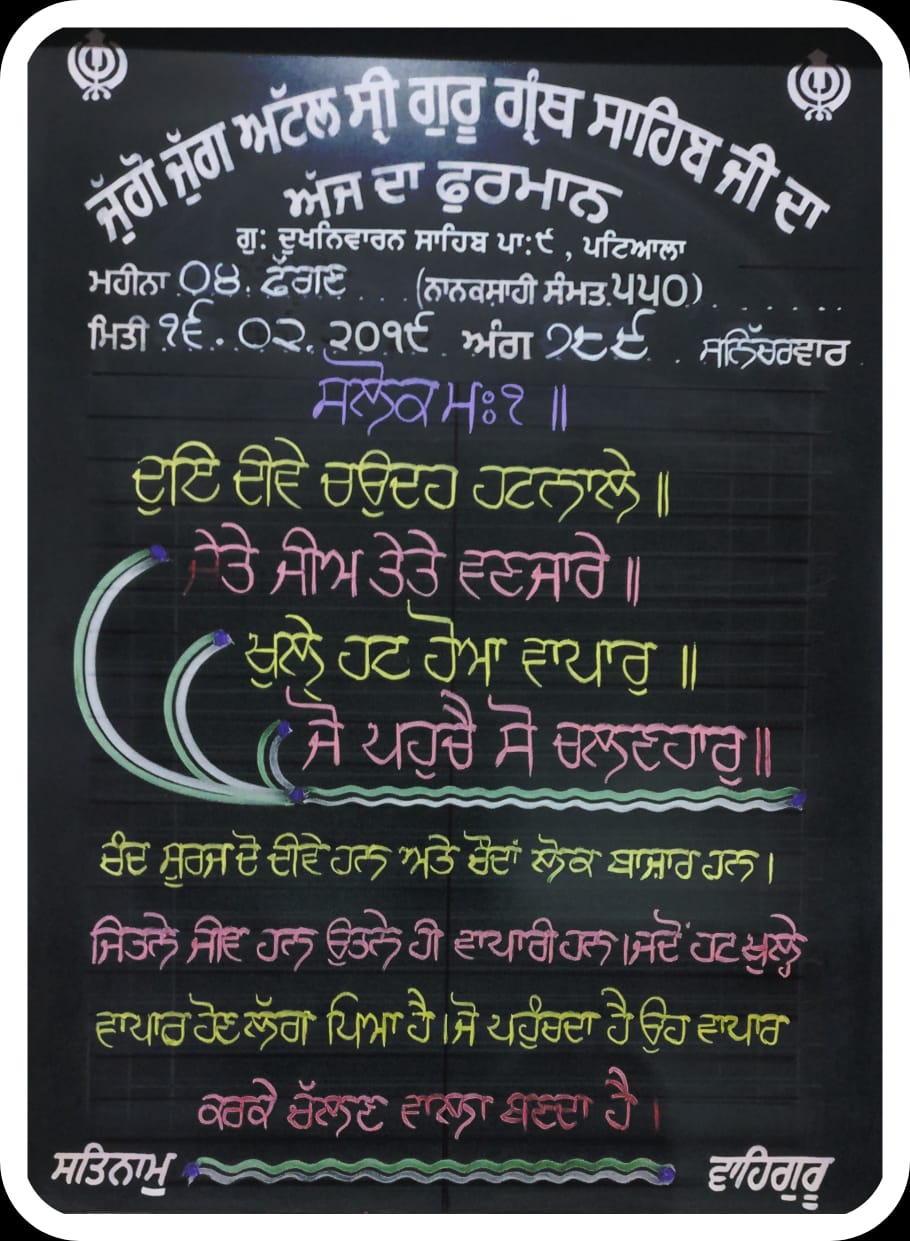 ਜੁੱਗੋ ਜੁੱਗ ਅੱਟਲ ਸ੍ਰੀ ਗੁਰੂ ਗ੍ਰੰਥ ਸਾਹਿਬ ਜੀ ਦਾ
ਅੱਜ ਦਾ ਫੁਰਮਾਨ
ਗੁ: ਦੁਖਨਿਵਾਰਨ ਸਾਹਿਬ ਪਾ:੯ , ਪਟਿਆਲਾ
ਮਹੀਨਾ ੦੪. ਫੱਗਣ (ਨਾਨਕਸ਼ਾਹੀ ਸੰਮਤ ੫੫੦)
ਮਿਤੀ ੧੬.੦੨.੨੦੧੯ ਅੰਗ ੭੮੯ ਸਨਿੱਚਰਵਾਰ
ਸਲੋਕ ਮਃ ੧ ॥
ਦੁਇ ਦੀਵੇ ਚਉਦਹ ਹਟਨਾਲੇ ॥
ਜੇਤੇ ਜੀਅ ਤੇਤੇ ਵਣਜਾਰੇ ॥
ਖੁਲ੍ਹੇ ਹਟ ਹੋਆ ਵਾਪਾਰੁ ॥
ਜੋ ਪਹੁਚੈ ਸੋ ਚਲਣਹਾਰੁ ॥
ਚੰਦ ਸੂਰਜ ਦੋ ਦੀਵੇ ਹਨ ਅਤੇ ਚੌਦਾਂ ਲੋਕ ਬਾਜ਼ਾਰ ਹਨ।
ਜਿਤਨੇ ਜੀਵ ਹਨ ਉਤਨੇ ਹੀ ਵਾਪਾਰੀ ਹਨ।ਜਦੋਂ ਹਟ ਖੁਲ੍ਹੇ
ਵਾਪਾਰ ਹੋਣ ਲੱਗ ਪਿਆ ਹੈ।ਜੋ ਪਹੁੰਚਦਾ ਹੈ ਉਹ ਵਾਪਾਰ
ਕਰਕੇ ਚੱਲਣ ਵਾਲਾ ਬਣਦਾ ਹੈ।
ਸਤਿਨਾਮੁ ਵਾਹਿਗੁਰੂ